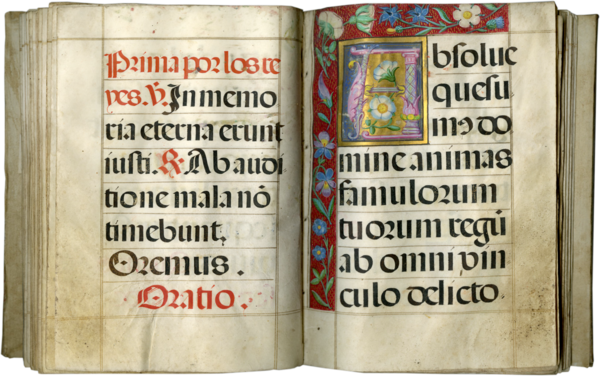 Prima por los re
yes. V. In memo
ria eterna erunt
iusti. R. Ab audi
tione mala nō
timebunt.
Oremus.
Oratio.
Absolue
quesu
mꝰ do
mine animas
famulorum
tuorum regū
ab omni vin
culo delicto